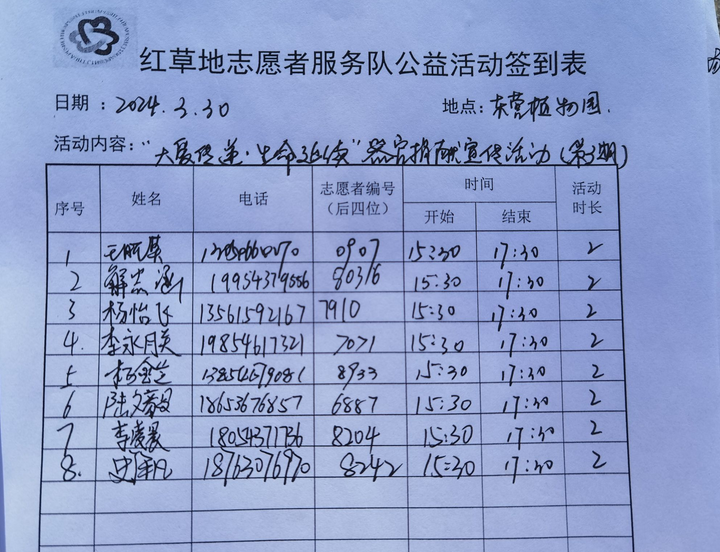 红草地志愿者服务队公益活动签到表
日期：2024.3.30 地点：东营植物园.
活动内容："大爱传递·生命延续"器官捐献宣传活动(第3期)
序号 姓名 电话 志愿者编号（后四位） 时间 开始 结束 活动时长
1 0907 15:30 17:30 2
2 解志涵 19954379556 80316 15:30 17:30 2
3 杨怡飞 13561592167 7910 15:30 17:30 2
4. 李永月英 19854617321 7071 15:30 17:30 2
5 杨金芝 8933 15:30 17:30 2
6 18653676857 6887 15:30 17:30 2
7 李凌晨 18054371736 8204 15:30 17:30 2
8. 18763076970 8242 15:30 17:30 2